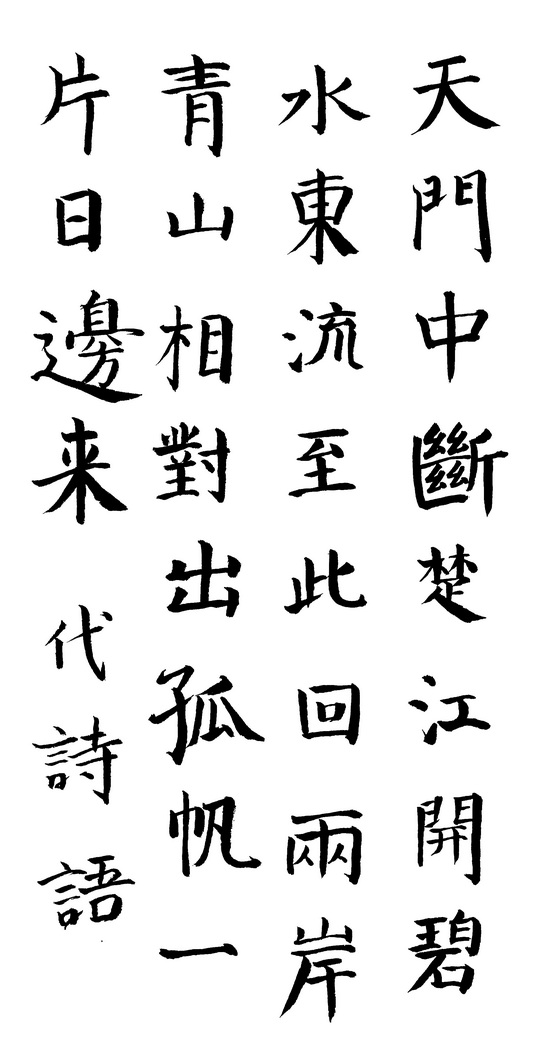 天門中斷楚江開碧
水東流至此回兩岸
青山相對出孤帆一
片日邊来 代詩語